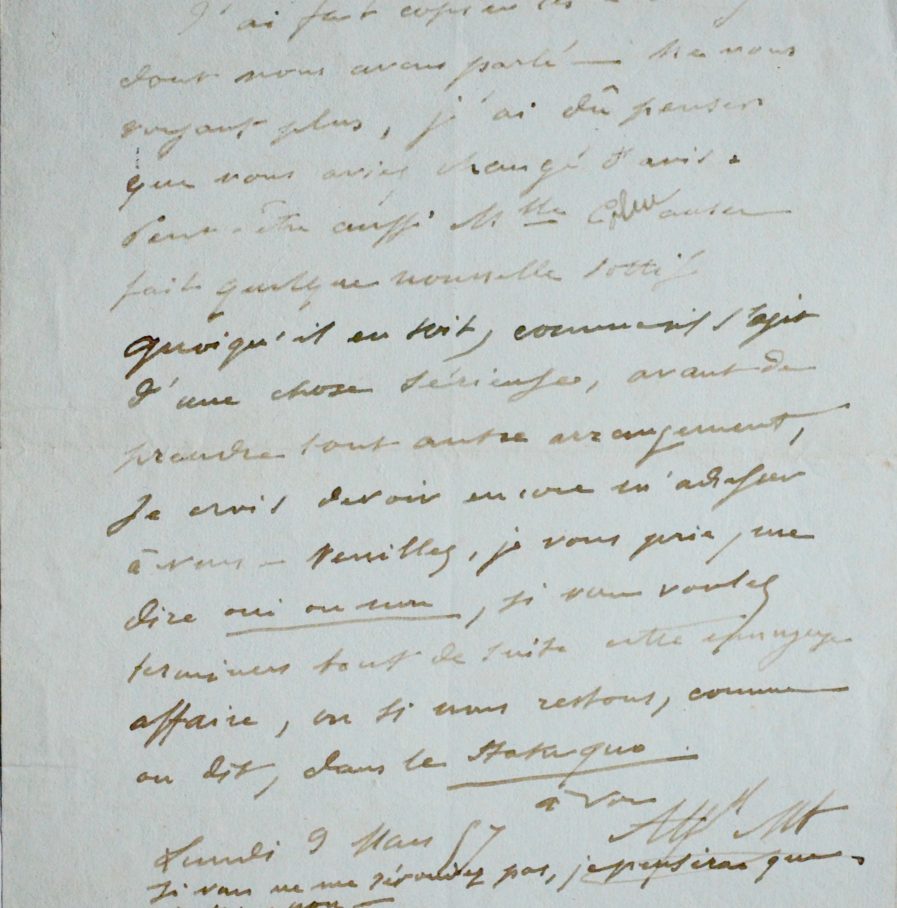 J'ai fait copier les
dont nous avons parlé — Ne vous
voyant plus, j'ai dû penser
que vous aviez changé d'avis.
Peut-être aussi Mlle
fait quelque nouvelle sottise
Quoiqu'il en soit, comme il s'agit
d'une chose sérieuse, avant de
prendre tout autre arrangement,
Je crois devoir encore m'adresser
à vous — Veuillez, je vous prie, me
dire oui ou non, si vous voulez
terminer tout de suite cette
affaire, ou si nous restons, comme
on dit, dans le Statu quo.
à vous
Lundi 9 Mars 57
Si vous ne me répondez pas, je penserai que
non —